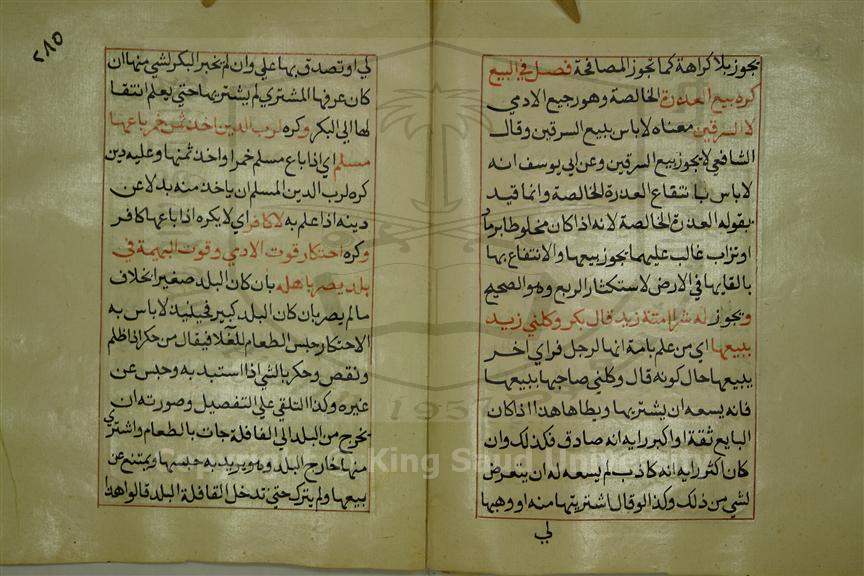 يجوز بلا كراهة كما تجوز المصافحة فصل في البيع
كره بيع العذرة الخالصة وهو رجيع الادمي
لا السرقين معناه لا باس ببيع السرقين وقال
الشافعي لا يجوز بيع السرقين وعن ابي يوسف انه
لا باس بانتفاع العذرة الخالصة وانما قيد
بقوله العذرة الخالصة لانه اذا كان مخلوطا برماد
او تراب غالب عليهما يجوز بيعها والانتفاع بها
بالقايها في الارض لاستكثار الريع وهو الصحيح
ويجوز له شرا امة زيد قال بكر وكلني زيد
ببيعها اي من علم بامة انها لرجل فراي اخر
يبيعها حال كونه قال وكلني صاحبها ببيعها
فانه يسعه ان يشتريها ويطاها هذا اذا كان
البايع ثقة او اكبر رايه انه صادق فكذلك وان
كان اكثر رايه انه كاذب لم يسعه له ان يتعرض
لشي من ذلك وكذا لو قال اشتريتها منه او وهبها
لي
٢٨٥
لي او تصدق بها علي وان لم يخبر البكر لشي منها ان
كان عرفها المشتري لم يشتريها حتي يعلم انتقا
لها الي البكر وكره لرب الدين اخذ ثمن خمر باعها
مسلم اي اذا باع مسلم خمرا واخذ ثمنها وعليه دين
كره لرب الدين المسلم ان ياخذ منه بدلا عن
دينه اذا علم به لا كافر اي لا يكره اذا باعها كافر
وكره احتكار قوت الادمي وقوت البهيمة في
بلد يضر باهله بان كان البلد صغيرا بخلاف
ما لم يضر بان كان البلد كبير فحينيذ لا باس به
الاحتكار حبس الطعام للغلا فيقال من حكر اذا ظلم
ونقص وحكر بالشي اذا استبد به وحبس عن
غيره وكذا التلقي علي التفصيل وصورته ان
يخرج من البلد الي القافلة جات بالطعام واشتري
منها خارج البلد وهو يريد به حبسها ويمتنع عن
بيعها ولم يترك حتي تدخل القافلة البلد قالوا هذا
Copyright © King Saud University
1957